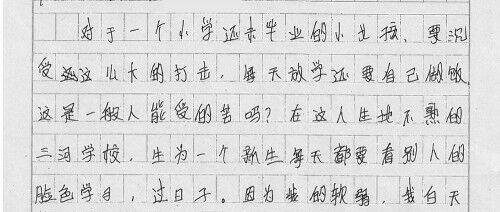 对于一个小学还未毕业的小女孩，要沉
受这么大的打击，每天放学还要自己做饭，
这是一般人能受的苦吗？在这人生地不熟的
三河学校，生为一个新生每天都要看别人的
脸色学习，过日子。因为我的软弱，我白天